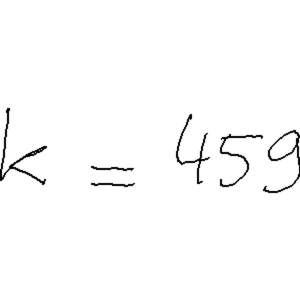 k = 459